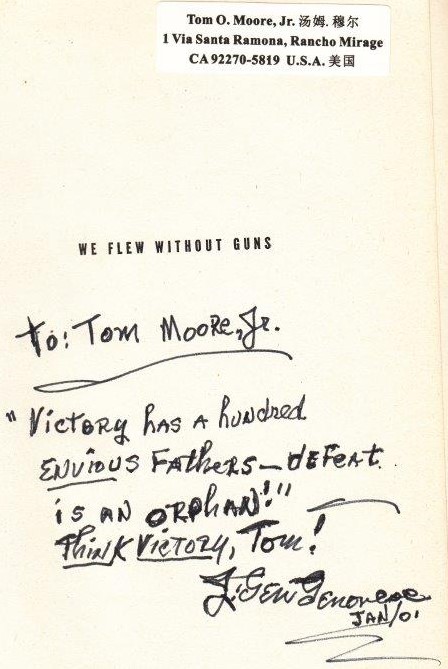 Tom O. Moore, Jr. 汤姆. 穆尔
1 Via Santa Ramona, Rancho Mirage
CA 92270-5819 U.S.A. 美国
WE FLEW WITHOUT GUNS
To: Tom Moore, Jr.
"Victory has a hundred
envious Fathers — defeat
is an orphan!"
Think Victory, Tom!
J. Gen Genovese
JAN/01